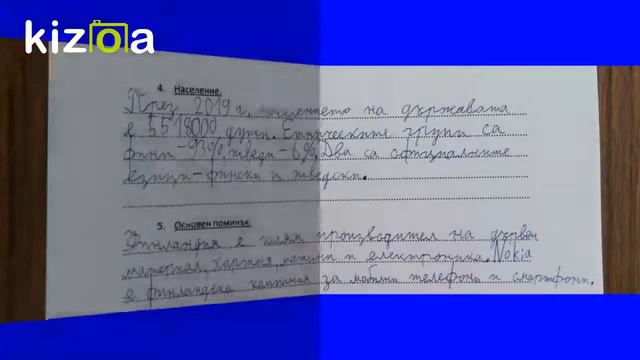 kizoa
4. Население.
През 2019 г. населението на държавата
е 5518000 души. Етническите групи са
фини - 93%, шведи - 6%. Два са официалните
езици - фински и шведски.
5. Основен поминък.
Финландия е голям производител на дървен
материал, хартия, машини и електроника. Nokia
е финландска компания за мобилни телефони и смартфони.